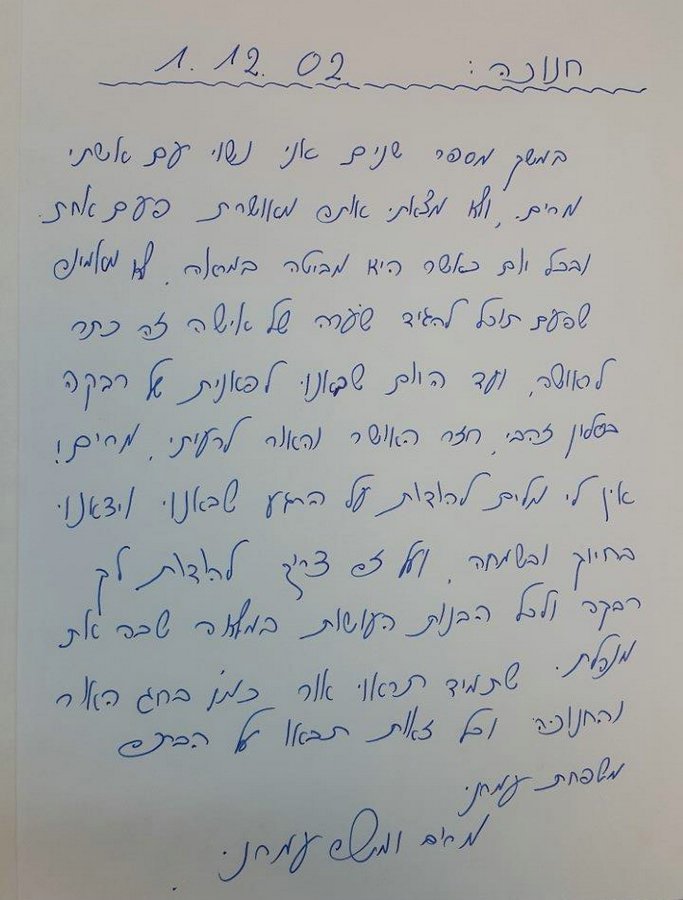 חנוכה: 1.12.02
במשך מספר שנים אני נשוי עם אשתי
מרים, ולא מצאתי אותה מאושרת פעם אחת.
ובכל יום כאשר היא מביטה במראה, לא מאמינה
שפעם תוכל להגיד שערה של אישה זה כתר
לראשה, ועד היום שבאנו לפאנית של רבקה
בסלון זהבי, חזר האושר והאור לרעיתי, מרים!
אין לי מלים להודות על הרגע שבאנו ויצאנו
בחיוך ובשמחה, ועל זה צריך להודות לך
רבקה ולכל הבנות העושות במלאכה שבה את
מנהלת. שתמיד תראו אור כמו בחג האור
והחנוכה וכל זאות תבאו על הברכה
משפחת עמרני
מרים ומשה עמרני.